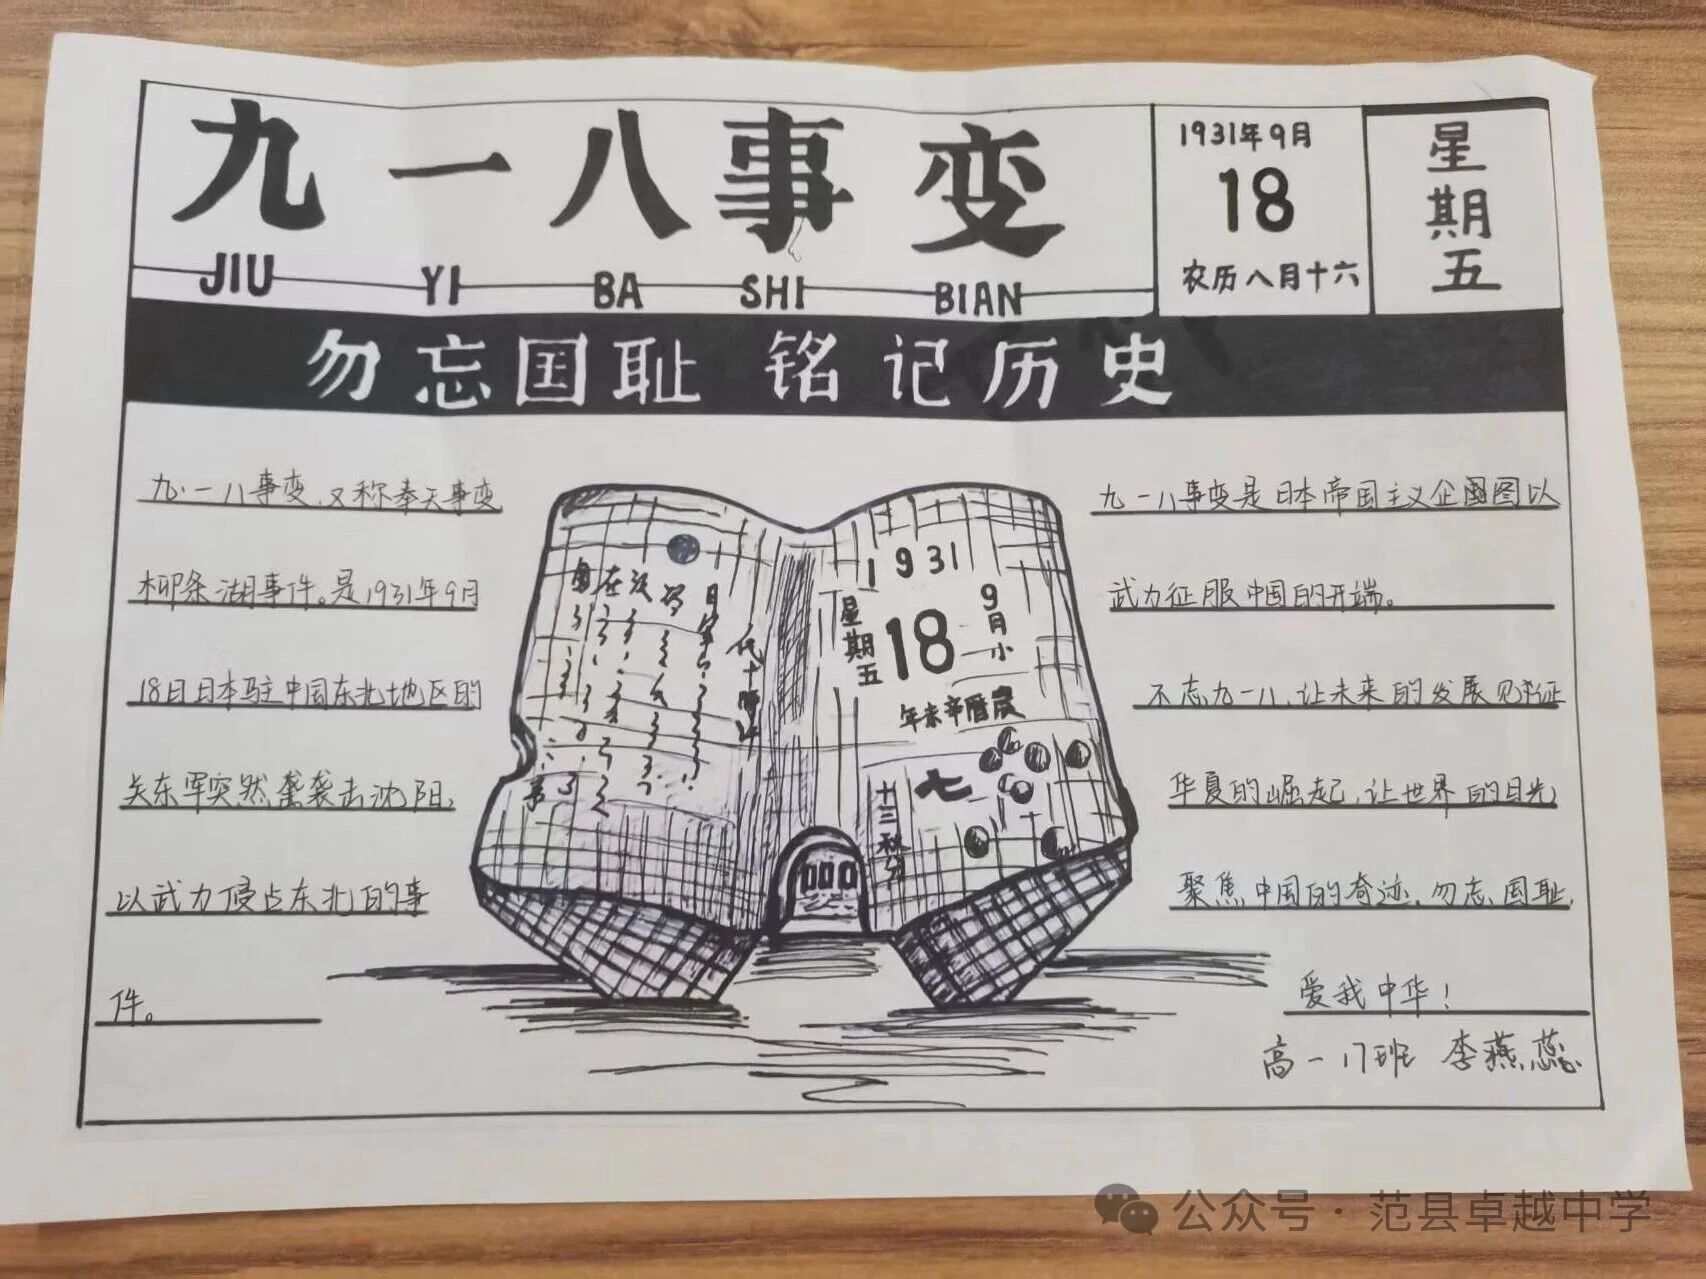 九一八事变
JIU YI BA SHI BIAN
1931年9月
18
农历八月十六
星期五
勿忘国耻 铭记历史
九·一八事变,又称奉天事变
柳条湖事件。是1931年9月
18日日本驻中国东北地区的
关东军突然袭击沈阳,
以武力侵占东北的事
件。
1931
9月小
18
星期五
年未辛曆農
七
十三秋分
九一八事变是日本帝国主义企图以
武力征服中国的开端。
不忘九一八,让未来的发展见证
华夏的崛起,让世界的目光
聚焦中国的奇迹,勿忘国耻,
爱我中华!
高一17班 李燕蕊
公众号·范县卓越中学